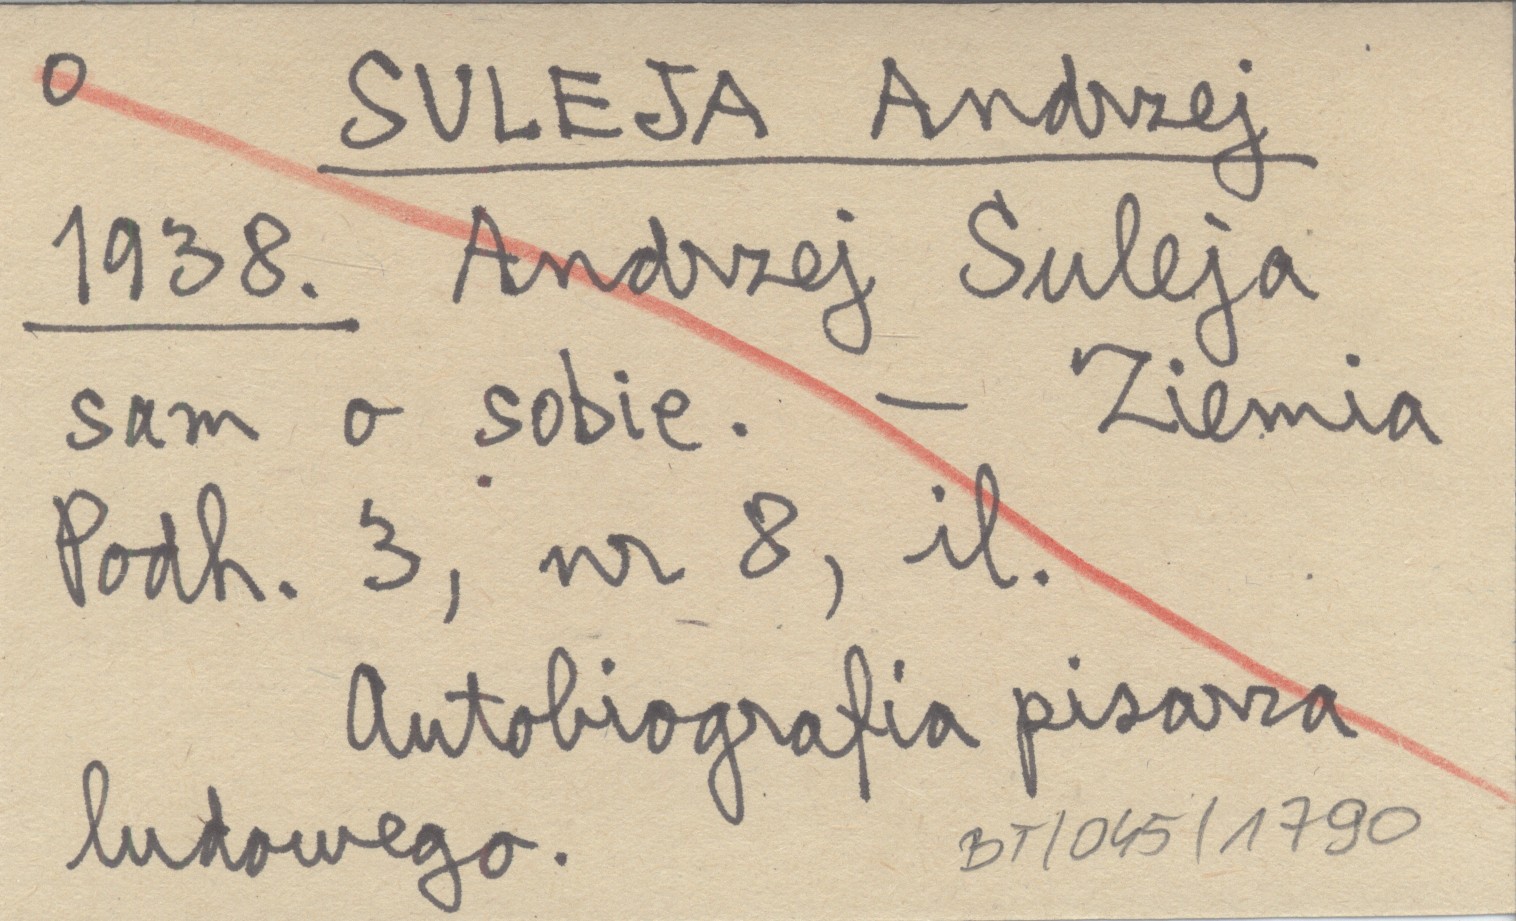 O SULEJA Andrzej
1938. Andrzej Suleja
sam o sobie. — Ziemia
Podh. 3, nr 8, il.
Autobiografia pisarza
ludowego.
BT/045/1790